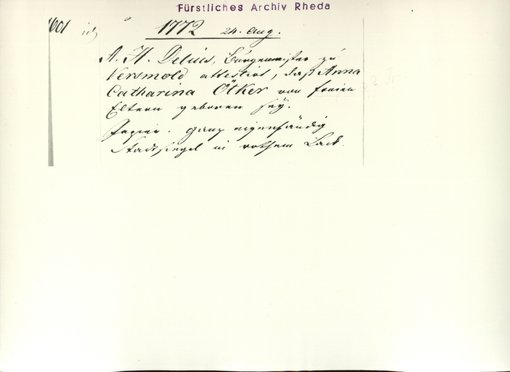 Fürstliches Archiv Rheda
1001
1772 24. Aug.
A. H. Delius, Bürgermeister zu
Versmold attestirt, daß Anna
Catharina Ölker von freien
Eltern geboren sey.
Papier. ganz eigenhändig
Stadtsiegel in rothem Lack.